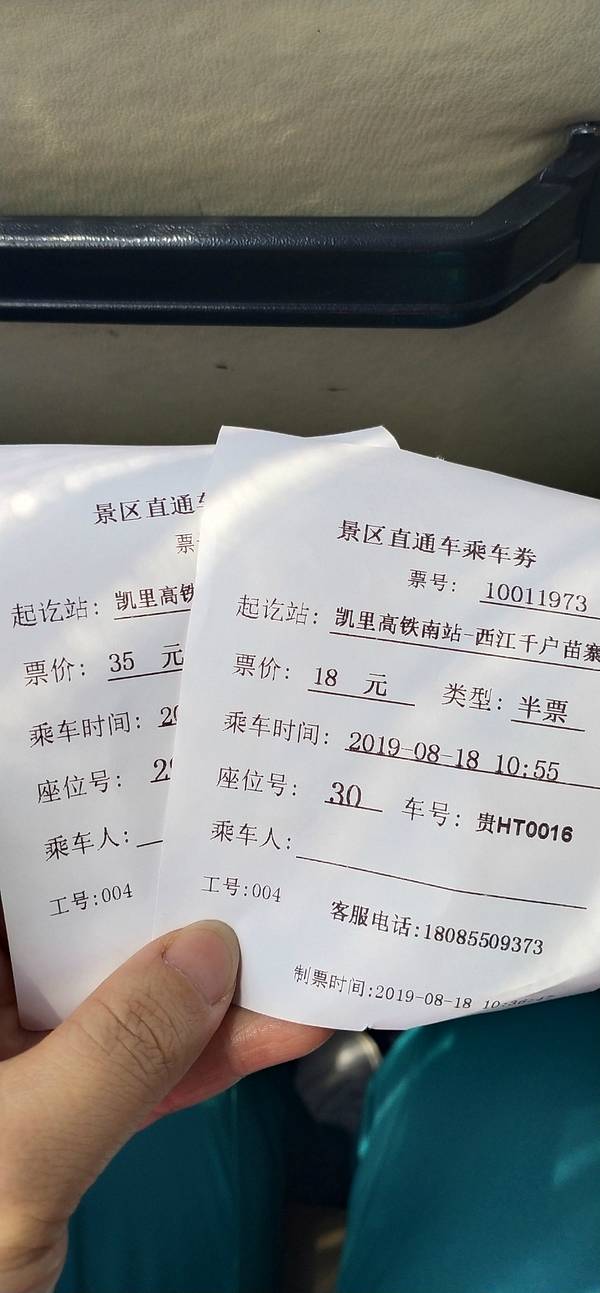 景区直通车
票
起讫站：凯里高铁
票价：35 元
乘车时间：20
座位号：29
乘车人：
工号:004
景区直通车乘车券
票号：10011973
起讫站：凯里高铁南站-西江千户苗寨
票价：18 元 类型：半票
乘车时间：2019-08-18 10:55
座位号：30 车号：贵HT0016
乘车人：
工号:004
客服电话:18085509373
制票时间:2019-08-18